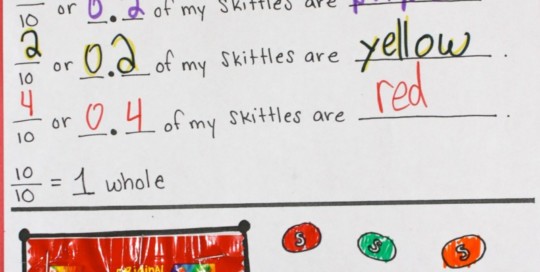 10 or 0.2 of my Skittles are
2/10 or 0.2 of my Skittles are yellow.
4/10 or 0.4 of my Skittles are red.
10/10 = 1 whole
S S S
original